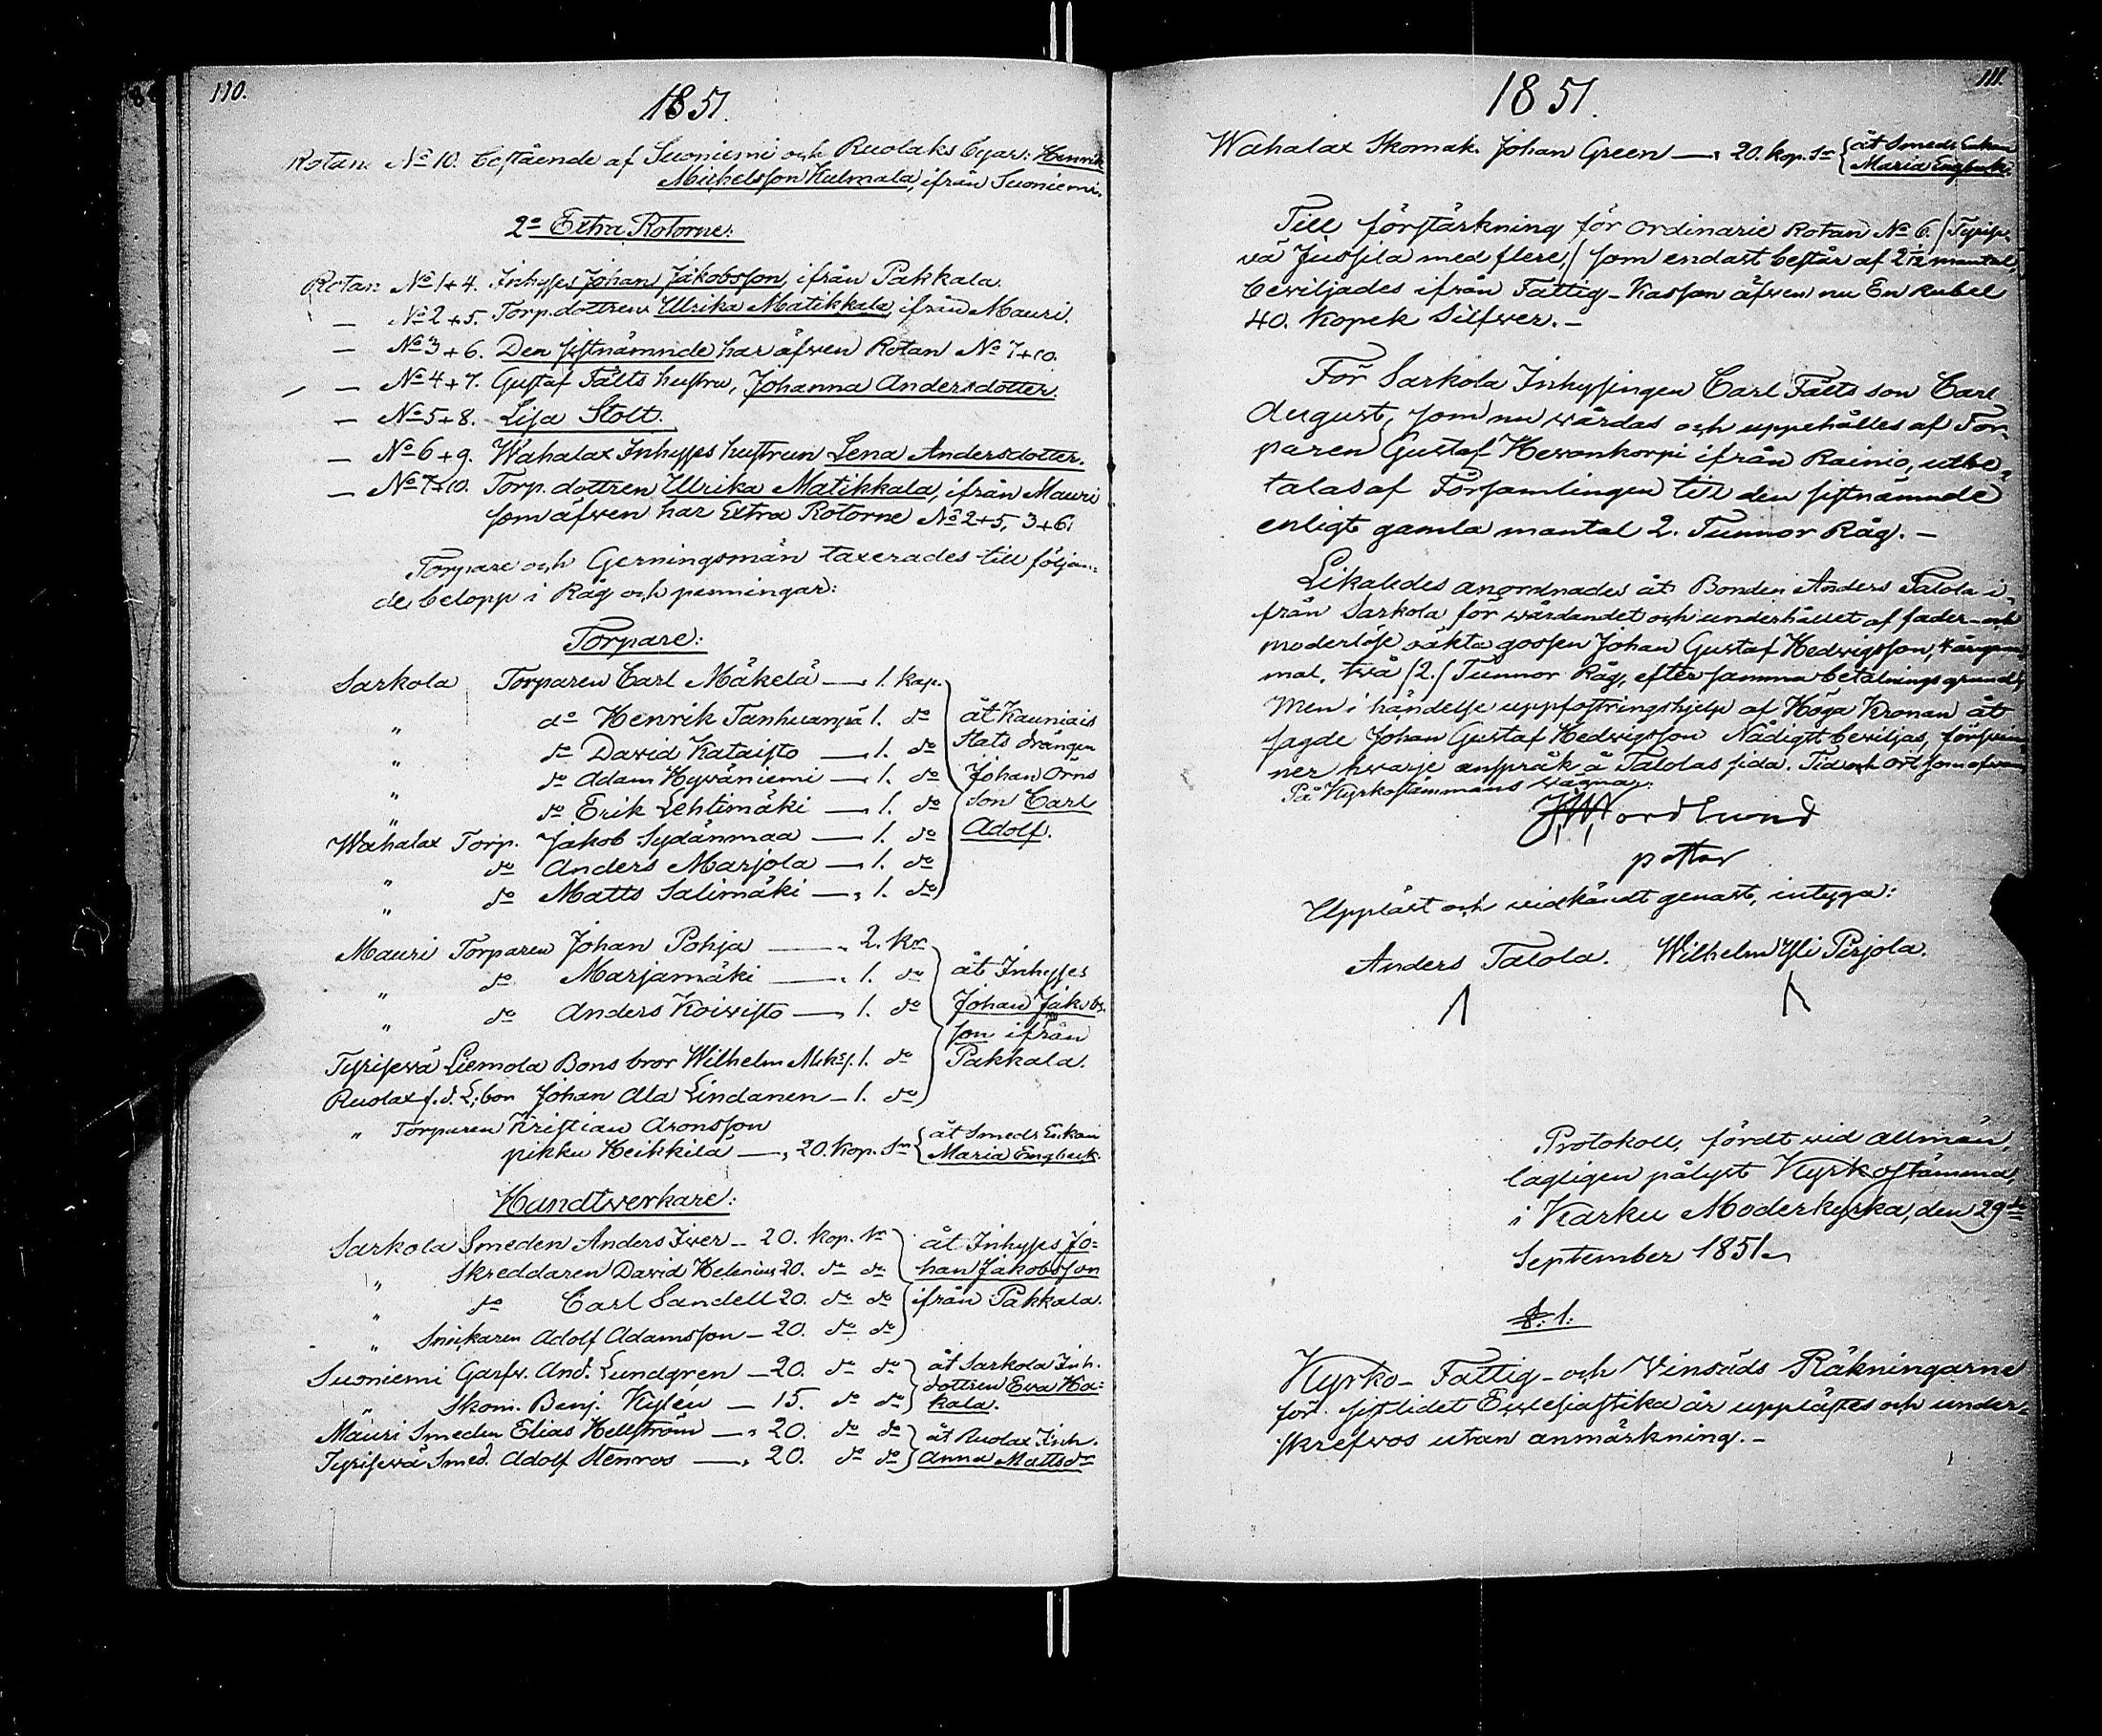 110.
1851.
Rotan No 10. bestående af Suoniemi och Ruolaks byar: Henrik
Michelsson Kulmala, ifrån Suoniemi.
2o Extra Rotorne:
Rotan No 1+4. Inhyses Johan Jakobsson, ifrån Pakkala.
— No 2+5. Torp.dottren Ulrika Matikkala, ifrån Mauri.
— No 3+6. Den sistnämnde har äfwen Rotan No 7+10.
— No 4+7. Gustaf Fälts hustru, Johanna Andersdotter.
— No 5+8. Lisa Stolt.
— No 6+9. Wahalax Inhyses hustrun Lena Andersdotter.
— No 7+10. Torp. dottren Ulrika Matikkala, ifrån Mauri
som äfwen har Extra Rotorne No 2+5, 3+6.
Torpare och Gerningsmän taxerades till följan=
de belopp i Råg och penningar:
Torpare:
Sarkola Torparen Carl Mäkelä — 1. kap.
" do Henrik Tanhuanpä 1. do åt Kauniais
" do David Kataisto — 1. do Stats drängen
" do Adam Hywäniemi — 1. do Johan Örns
" do Erik Lehtimäki — 1. do son Carl
Wahalax Torp. Jakob Sydänmaa — 1. do Adolf.
" do Anders Marjola — 1. do
" do Matts Salimäki — 1. do
Mauri Torparen Johan Pohja — 2. kr
" do Marjamäki — 1. do åt Inhyses
" do Anders Koiwisto — 1. do Johan Jakobs=
son ifrån
Tyrisewä Liemola Bons bror Wilhelm Miks. 1. do Pakkala.
Ruolax f.d. L;bon Johan Ala Lindanen — 1. do
" Torparen Kristian Aronsson
pikku Heikkilä — 20. Kop. Sr åt Smeds Enkan
Maria Engberk.
Handtwerkare:
Sarkola Smeden Anders Iwer — 20. Kop. Sr åt Inhyses Jo=
" Skreddaren David Helenius 20. do do han Jakobsson
" do Carl Sandell 20. do do ifrån Pakkala.
" Snickaren Adolf Adamsson — 20. do do
Suoniemi Garfw. And. Lundgren — 20. do do åt Sarkola Inh.
dottren Ewa Ha=
" Skom. Benj. Kylén — 15. do do kala.
Mauri Smeden Elias Hellström — 20. do do åt Ruolax Inh.
Tyrisewä Smed. Adolf Stenros — 20. do do Anna Mattsdr
111.
1851.
Wahalax Skomak. Johan Green — 20. kop. Sr åt Smeds Enkan
Maria Engberk.
Till förstärkning för ordinarie Rotan No 6. /Tyrise=
vä Jussila med flere,/ som endast består af 2 1/12 mantal,
beviljades ifrån Fattig-Kassan äfwen nu En Rubel
40. Kopek Silfwer. —
För Sarkola Inhysingen Carl Fälts son Carl
August, som nu wårdas och uppehålles af Tor=
paren Gustaf Hewonkorpi ifrån Rainio, utbe=
talas af Församlingen till den sistnämnde
enligt gamla mantal 2. Tunnor Råg. —
Likaledes anordnades åt Bonden Anders Talola i=
från Sarkola för wårdandet och underhållet af fader- och
moderlöse oäkta gossen Johan Gustaf Hedwigsson,
mal, twå /2./ Tunnor Råg, efter samma betalnings grund;
Men i händelse uppfostringshjelp af Höga Kronan åt
sagde Johan Gustaf Hedwigsson Nådigst beviljas, försvin=
ner hwarje anspråk å Talolas sida. Tid och ort som ofwan.
På Kyrkostämmans wägnar:
Nordlund
pastor
Uppläst och widkändt genast, intyga:
Anders Talola. Wilhelm Yli Pirjola.
Protokoll, fördt wid allmän,
lagligen pålyst Kyrkostämma,
i Karku Moderkyrka, den 29de
September 1851.
§. 1.
Kyrko- Fattig- och Vinsäds Räkningarne
för sistlidet Ecclesiastika år upplästes och under=
skrefwos utan anmärkning. —